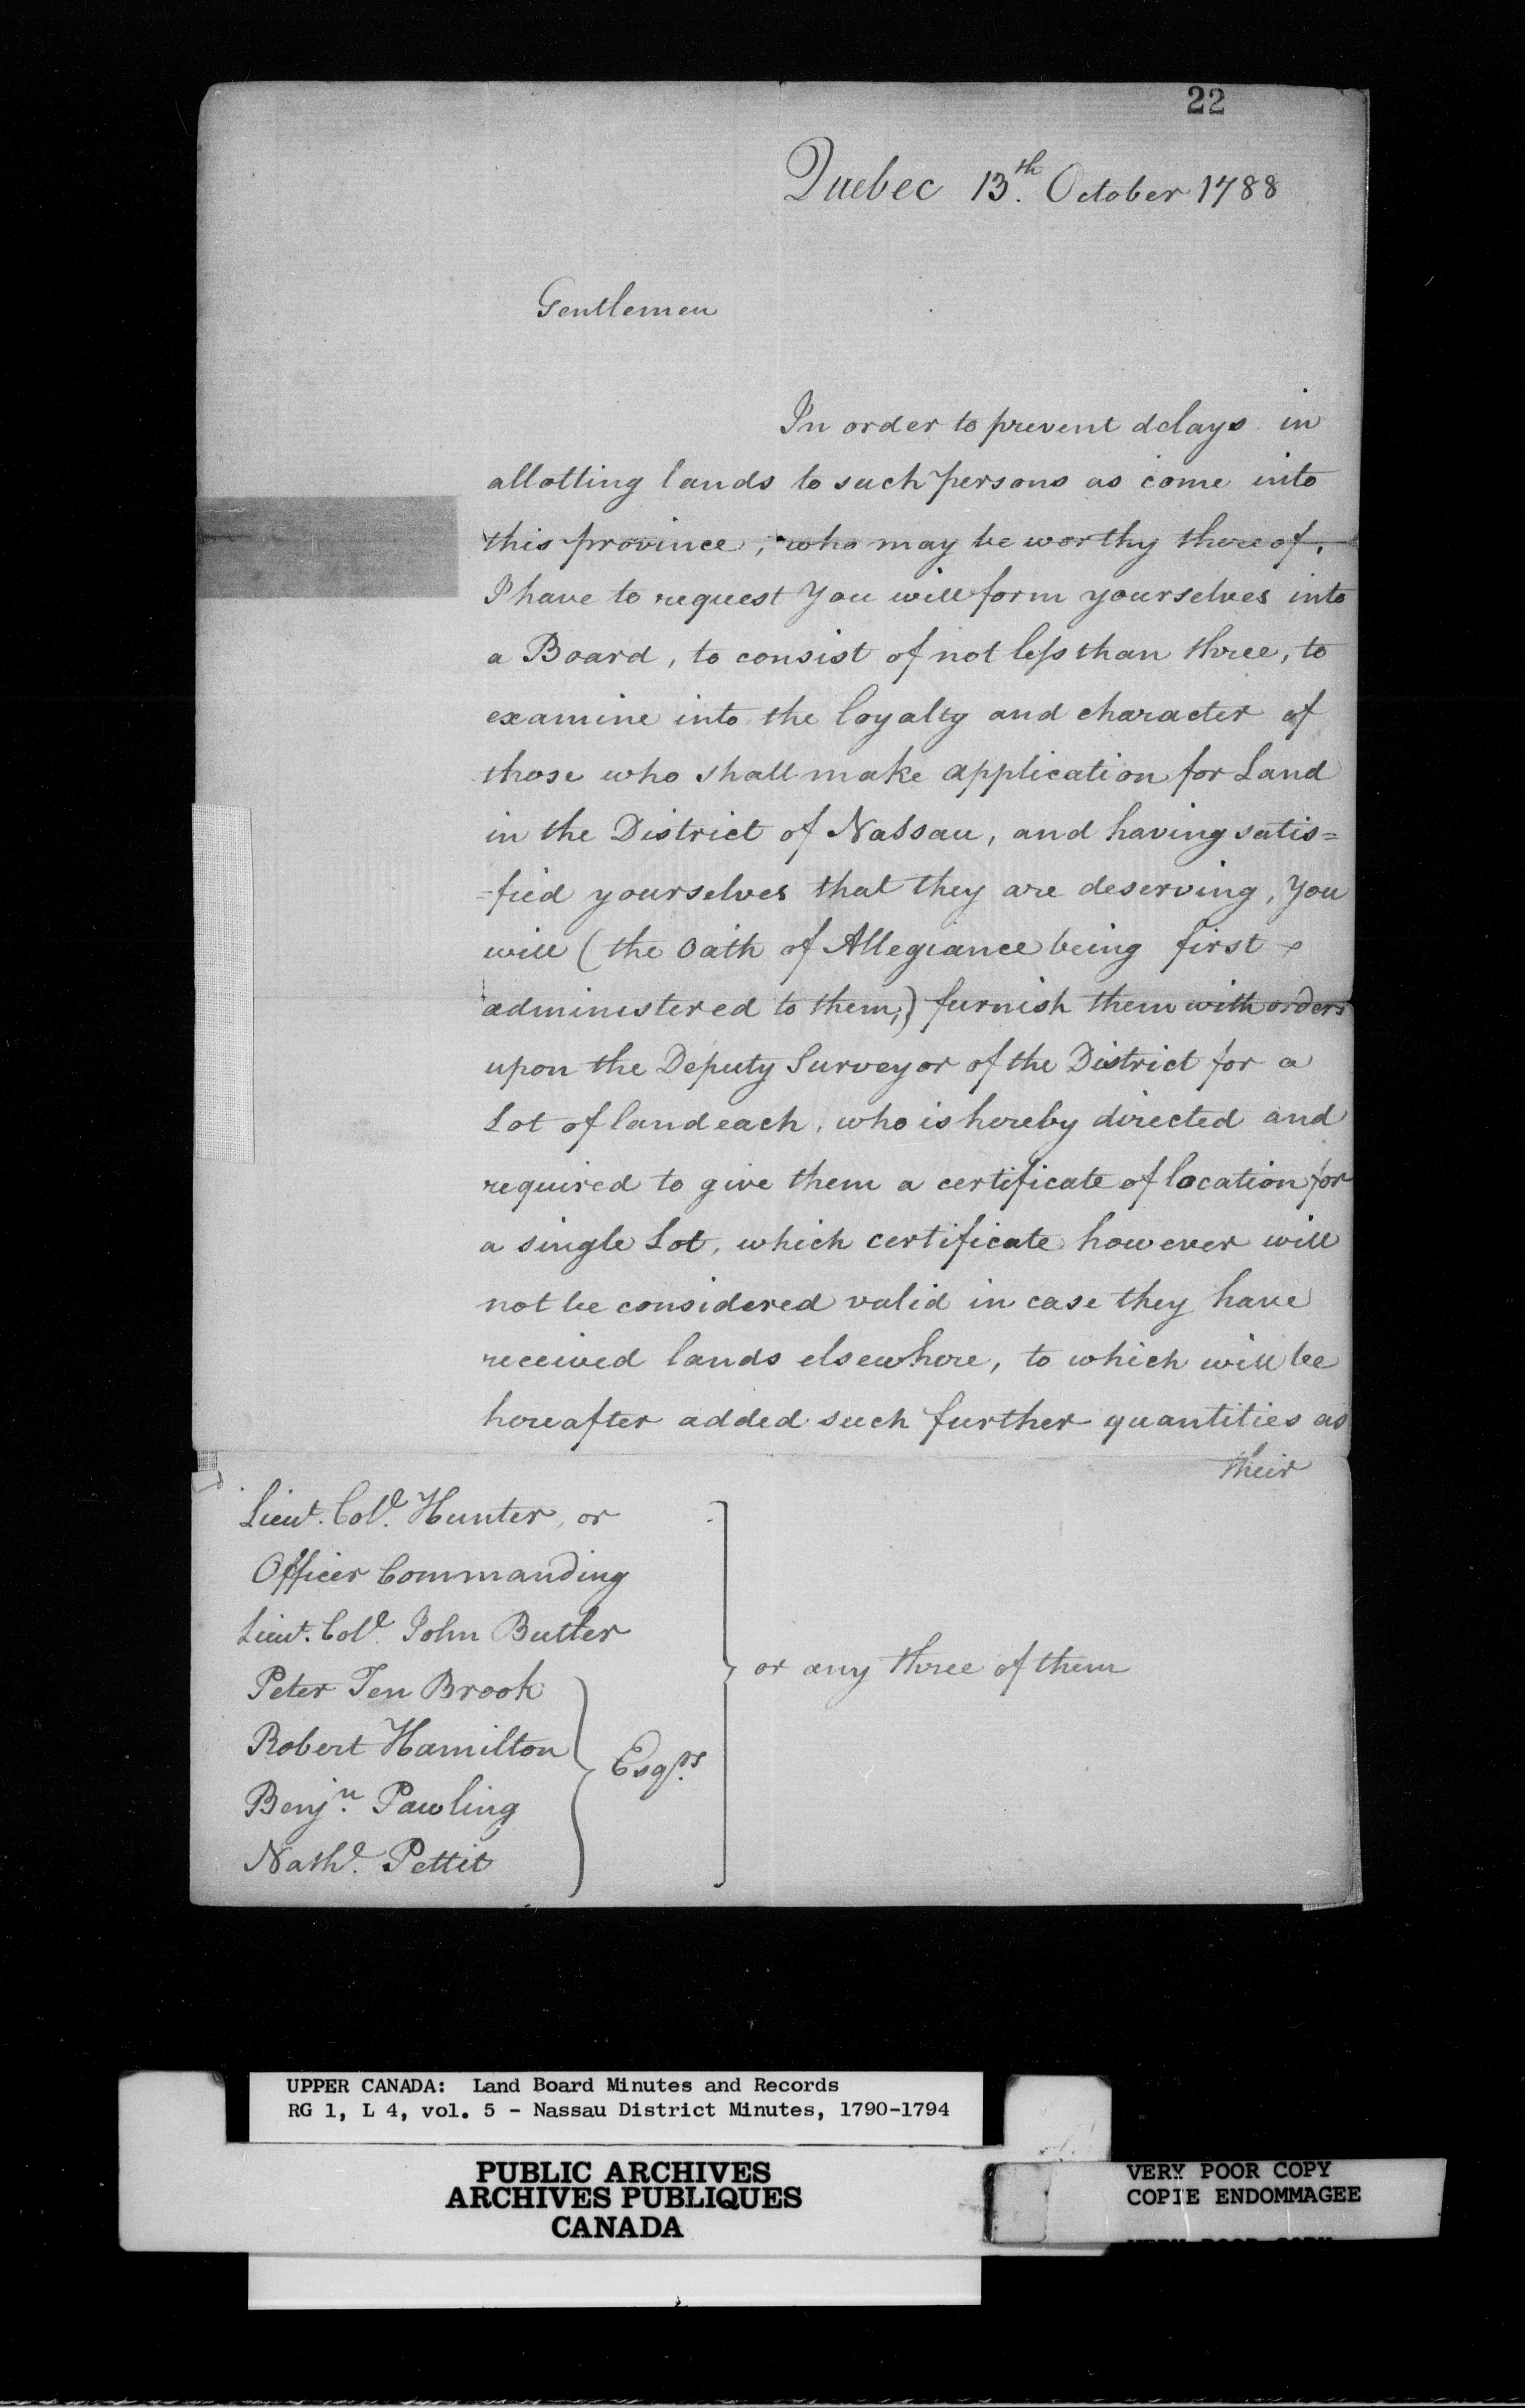 22
Quebec 13.th October 1788
Gentlemen
In order to prevent delays in
allotting lands to such persons as come into
this province, who may be worthy thereof,
I have to request You will form yourselves into
a Board, to consist of not less than three, to
examine into the loyalty and character of
those who shall make application for Land
in the District of Nassau, and having satis=
=fied yourselves that they are deserving, You
will (the Oath of Allegiance being first
administered to them,) furnish them with orders
upon the Deputy Surveyor of the District for a
Lot of land each, who is hereby directed and
required to give them a certificate of location for
a single Lot, which certificate however will
not be considered valid in case they have
received lands elsewhere, to which will be
hereafter added such further quantities as
their
Lieut. Col. Hunter, or
Officer Commanding
Lieut. Col. John Butler
Peter Ten Brook
Robert Hamilton
Benj.n Pawling
Nath.l Pettit
Esqrs.
or any three of them
UPPER CANADA: Land Board Minutes and Records
RG 1, L 4, vol. 5 - Nassau District Minutes, 1790-1794
PUBLIC ARCHIVES
ARCHIVES PUBLIQUES
CANADA
VERY POOR COPY
COPIE ENDOMMAGEE